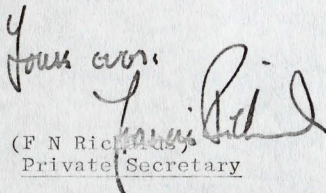 Yours ever,
Francis Richards
(F N Richards)
Private Secretary